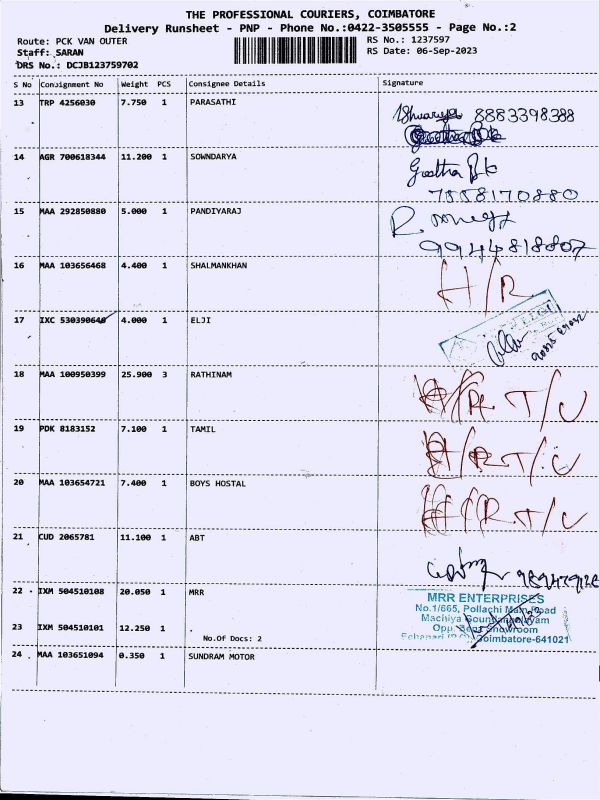 THE PROFESSIONAL COURIERS, COIMBATORE
Delivery Runsheet - PNP - Phone No.:0422-3505555 - Page No.:2
Route: PCK VAN OUTER RS No.: 1237597
Staff: SARAN RS Date: 06-Sep-2023
DRS No.: DCJB123759702
S No Consignment No Weight PCS Consignee Details Signature
13 TRP 4256030 7.750 1 PARASATHI
Ishwarya 8883398388
14 AGR 700618344 11.200 1 SOWNDARYA
Geetha
7558170880
15 MAA 292850880 5.000 1 PANDIYARAJ
R.
9944818807
16 MAA 103656468 4.400 1 SHALMANKHAN
H/R
17 IXC 530390640 4.000 1 ELJI
18 MAA 100950399 25.900 3 RATHINAM
T/U
19 PDK 8183152 7.100 1 TAMIL
T/U
20 MAA 103654721 7.400 1 BOYS HOSTAL
T/U
21 CUD 2065781 11.100 1 ABT
22 IXM 504510108 20.050 1 MRR
MRR ENTERPRISES
No.1/665, Pollachi Main Road
Machiya
23 IXM 504510101 12.250 1
No.Of Docs: 2
Opp. Showroom
Coimbatore-641021
24 MAA 103651094 0.350 1 SUNDRAM MOTOR